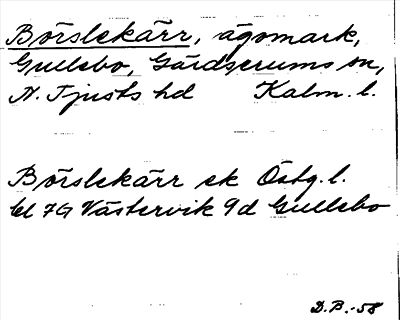 Börslekärr, ägomark,
Gullebo, Gärdserums sn,
N. Tjusts hd Kalm. l.
Börslekärr ek Östg. l.
bl 7G Västervik 9d Gullebo
D.B.-58